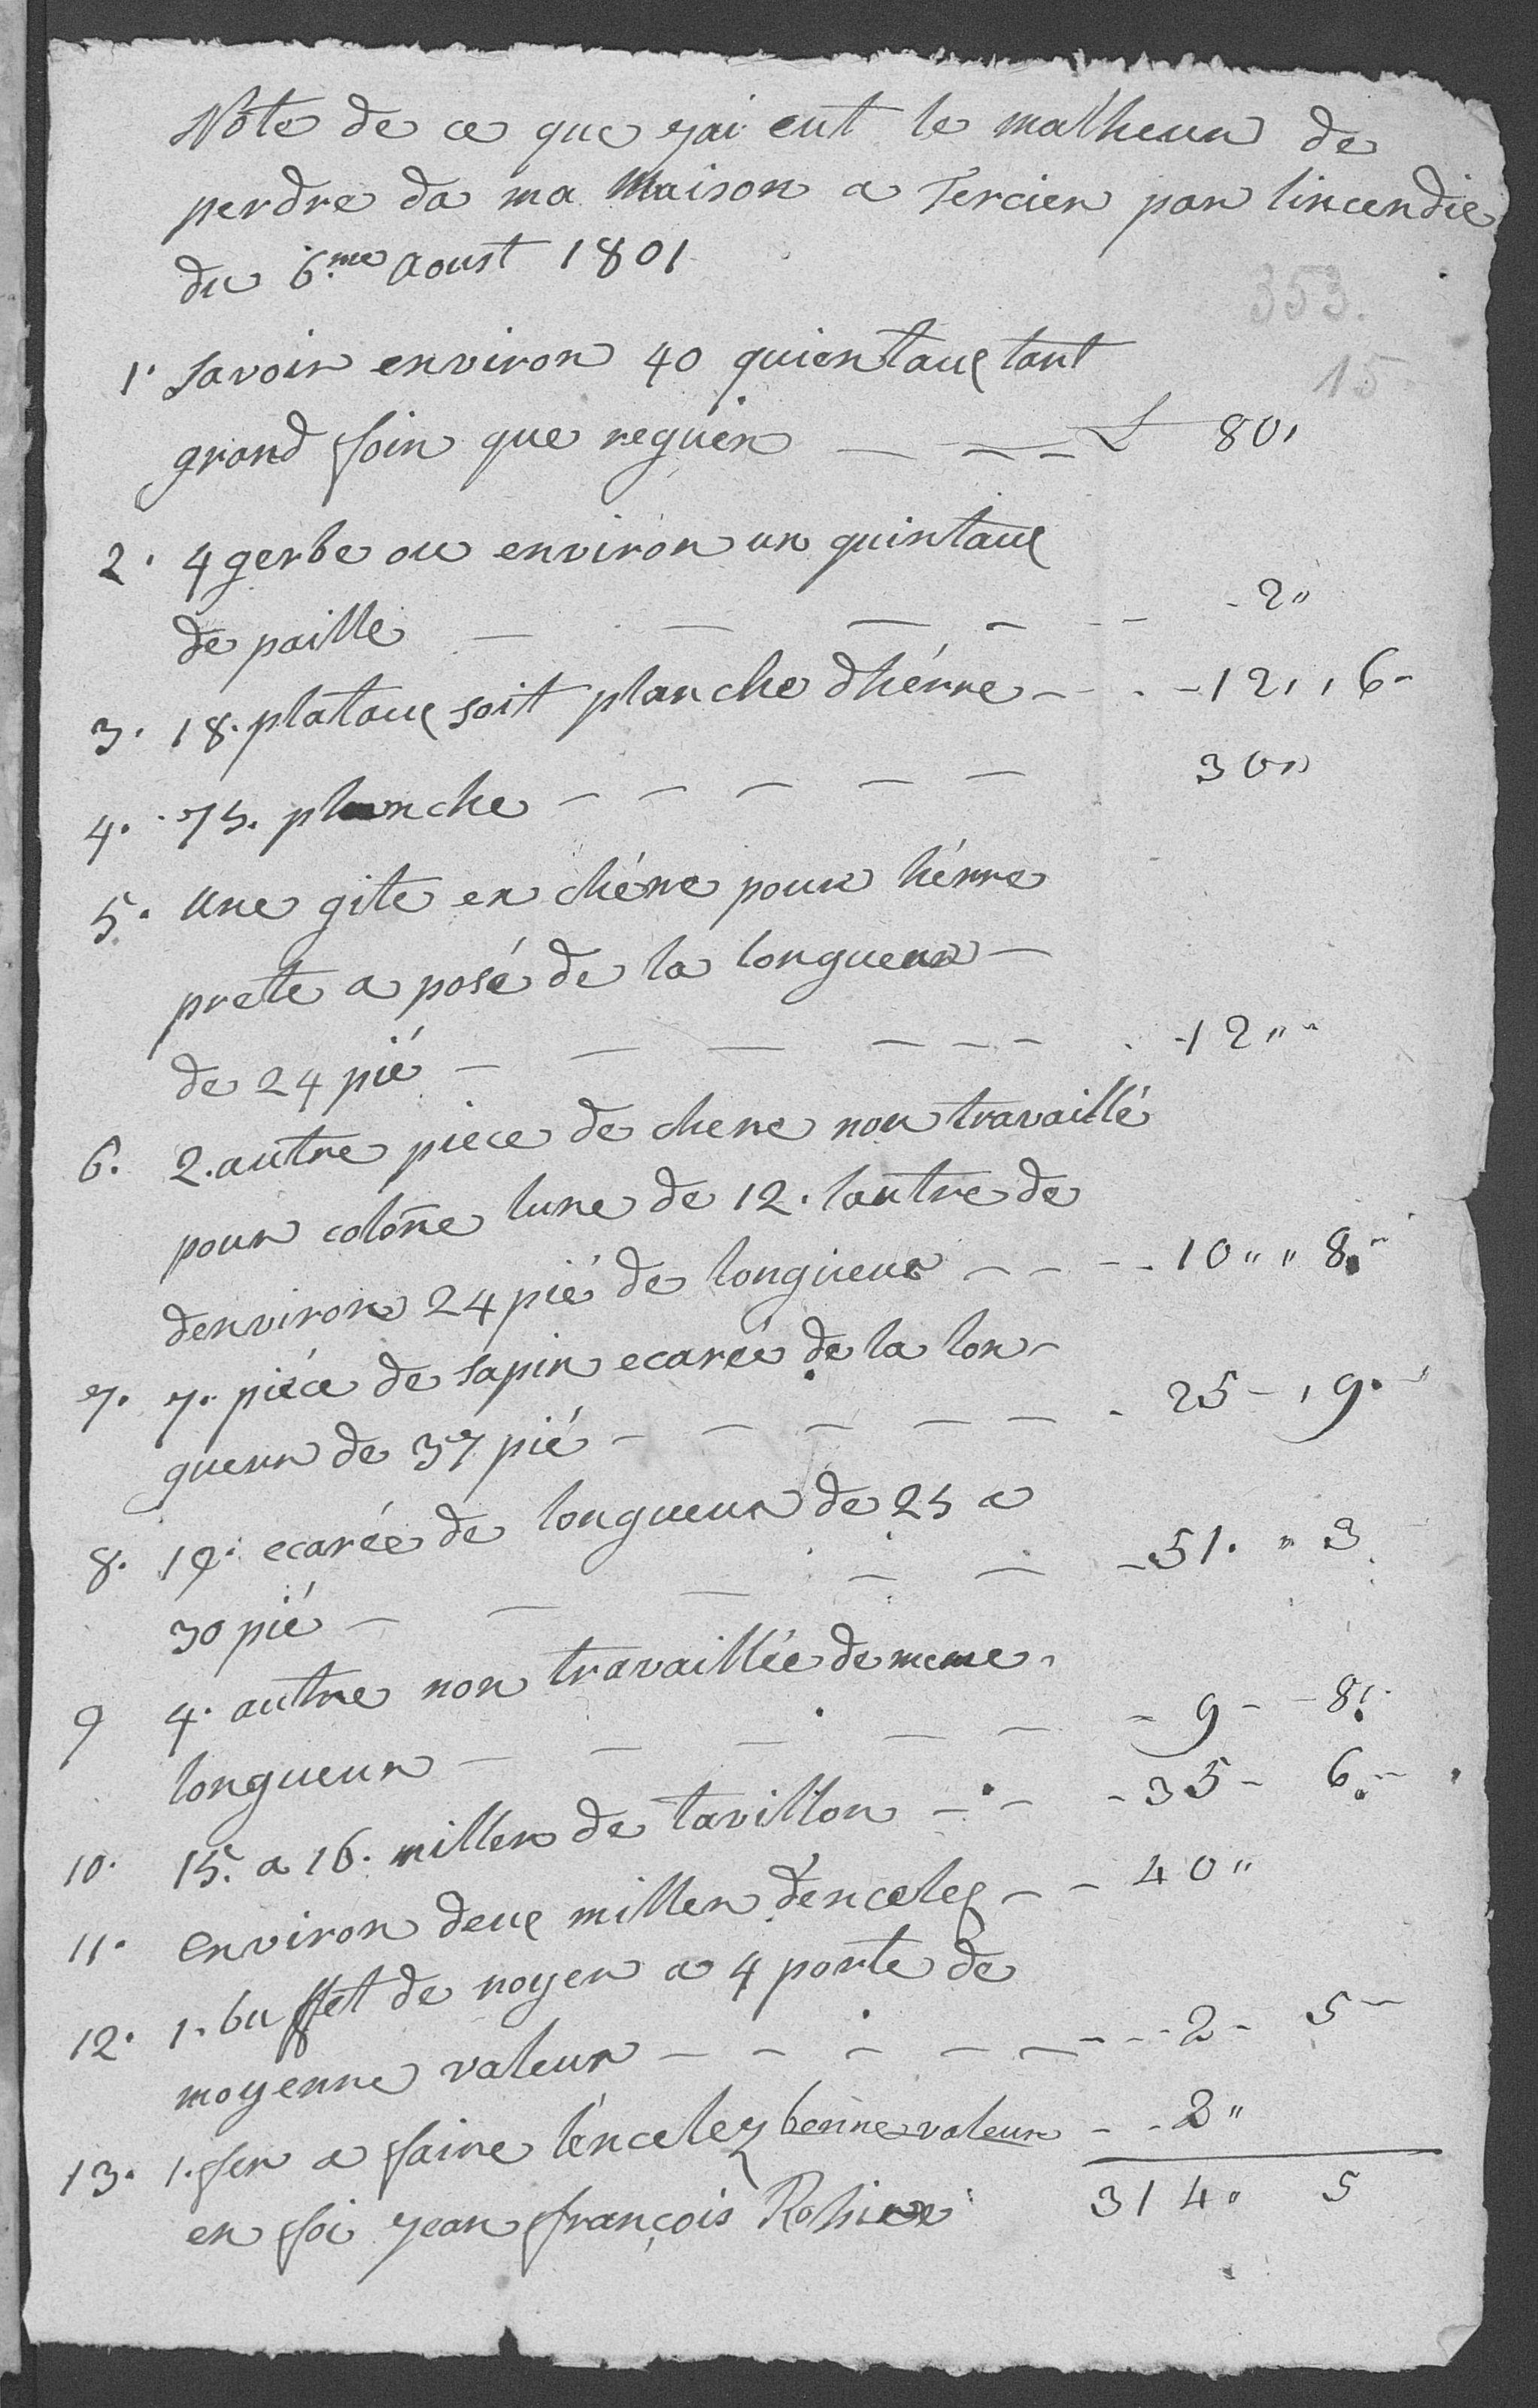 Note de ce que jai eut le malheur de
perdre da ma Maison a Tercier par lincendie
du 6.me Aoust 1801
353.
15
1. Savoir environ 40 quientaux tant
grand foin que reguin — — — L 80,
2. 4 gerbe ou environ un quintaux
de paille — — — — - - - 2"
3. 18. plataux soit planche dhérre - - - 12,, 6-
4. 75. planche - - - - - 30"
5. une gite en chéne pour hérre
prete a posé de la longueur -
de 24 pié - - - - - - - 12""
6. 2. autre piece de chene non travaillé
pour colone lune de 12. lautre de
denviron 24 pié de longueur - - - - 10"" 8.
7. 7. piéce de sapin ecarée de la lon-
gueur de 37 pié - - - - - - 25 - , 9.
8. 19. ecarée de longueur de 25 a
30 pié - - - - - - 51. " 3
9 4. autre non travaillée de meme
longueur - - - - - - 9 - - 8.
10. 15. a 16. miller de tavillon - - - 35 - 6.
11. environ deux miller dencelex - - 40"
12. 1. buffet de noyer a 4 porte de
moyenne valeur - - - - - - - - 2 - 5
13. 1. fer a faire lencelez bonne valeur - - 2"
en foi jean françois 314" 5